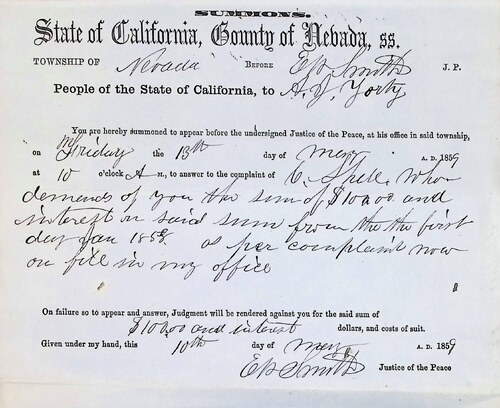 SUMMONS.
State of California, County of Nevada, ss.
TOWNSHIP OF Nevada BEFORE E P Smith J. P.
People of the State of California, to A. J. Yorty
You are hereby summoned to appear before the undersigned Justice of the Peace, at his office in said township,
on Friday the 13th day of may A. D. 1859
at 10 o'clock A M., to answer to the complaint of C. Spell. Who
demands of you the sum of $100.00 and
interest on said sum from the the first
day Jan 1858 as per complaint now
on file in my office
"
"
On failure so to appear and answer, Judgment will be rendered against you for the said sum of
$100.00 and interest dollars, and costs of suit.
Given under my hand, this 10th day of may A. D. 1859
E P Smith Justice of the Peace